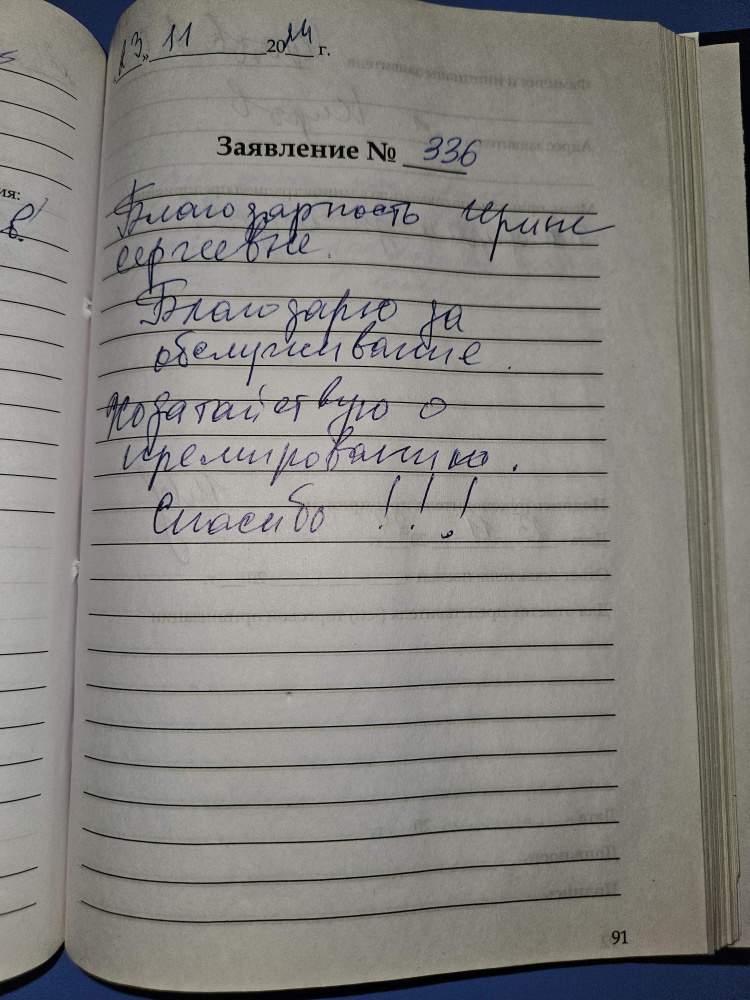 «23» 11 2024 г.
Заявление № 336
Благодарность Ирине
Сергеевне.
Благодарю за
обслуживание.
Ходатайствую о
премировании.
Спасибо !!!
ия:
в.
91